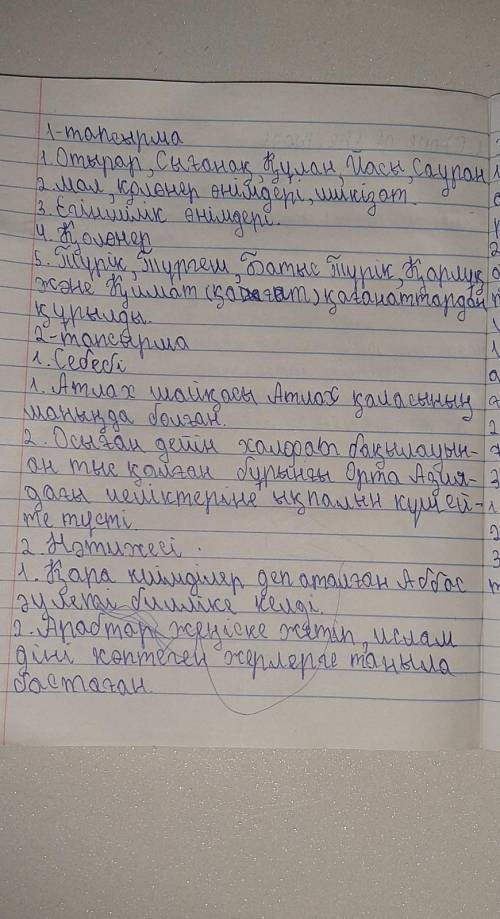 1-тапсырма
1. Отырар, Сығанақ, Құлан, Йасы, Сауран
2. мал, қолөнер өнімдері, шикізат.
3. Егіншілік өнімдері.
4. Қолөнер
5. Түрік, Түргеш, Батыс Түрік, Қарлуқ
және Құймат (қағанат) қағанаттардан
құрылды.
2-тапсырма
1. Себебі
1. Атлах шайқасы Атлах қаласының
маңында болған.
2. Осыған дейін халофат бақылауын-
ан тыс қалған бұрынғы Орта Азия-
дағы иеліктеріне ықпалын күшей-
те түсті.
2. Нәтижесі.
1. Қара киімділер деп аталған Аббас
әулеті билікке келді.
2. Арабтар жеңіске жетіп, ислам
діні көптеген жерлерге таныла
бастаған.